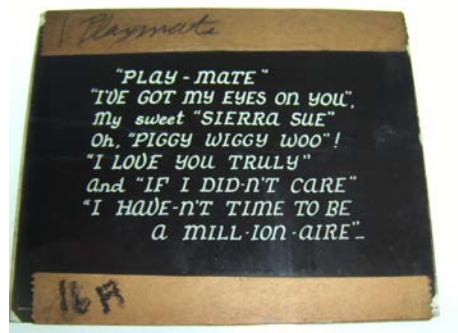 Playmate
"PLAY - MATE"
"I'VE GOT MY EYES ON YOU",
My sweet "SIERRA SUE"
Oh, "PIGGY WIGGY WOO"!
"I LOVE YOU TRULY"
and "IF I DID-N'T CARE"
"I HAVE-N'T TIME TO BE
a MILL-ION-AIRE"-
16A